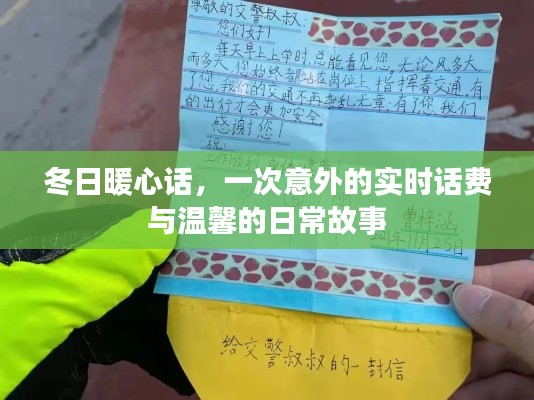 尊敬的交警叔叔：
您们好！
每天早上上学时，总能看见您。无论风多大，
雨多大，您始终都站在岗位上，指挥着交通，有
了您，我们的交通不再杂乱无章；有了您，我们
的出行才会更加安全。
感谢您！
祝：
冬日暖心话，一次意外的实时话费
与温馨的日常故事
曹梓涵
11月25日
给交警叔叔的一封信